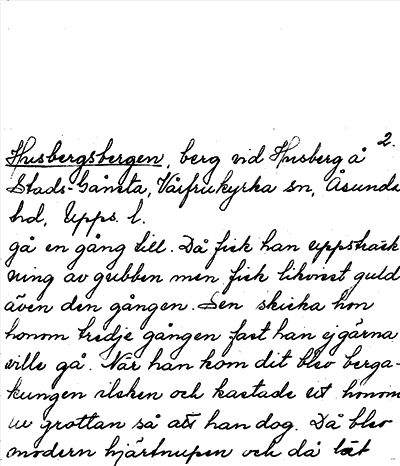 2.
Husbergsbergen, berg vid Husberg å
Stads-Gånsta, Vårfrukyrka sn, Åsunda
hd, Upps. l.
gå en gång till. Då fick han uppsträck
ning av gubben men fick likvist guld
även den gången. Sen skicka hon
honom tredje gången fast han ej gärna
ville gå. När han kom dit blev berga-
kungen ilsken och kastade ut honom
ur grottan så att han dog. Då blev
modern hjärtnupen och då lät